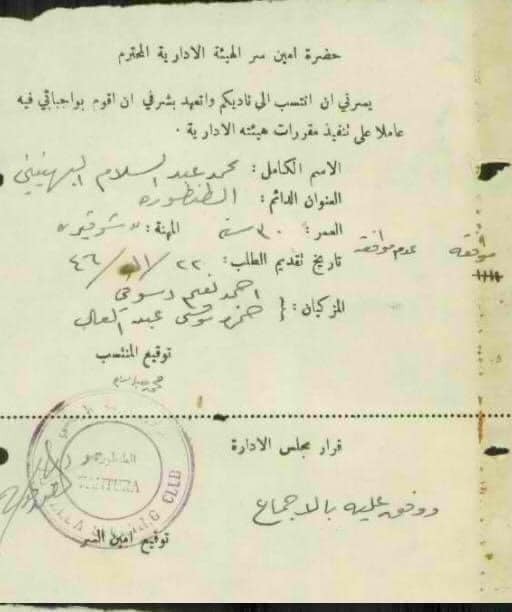 حضرة امين سر الهيئة الادارية المحترم
يسرني ان انتسب الى ناديكم واتعهد بشرفي ان اقوم بواجباتي فيه
عاملا على تنفيذ مقررات هيئته الادارية .
الاسم الكامل : محمد عبد السلام
العنوان الدائم : الطنطوره
العمر : ٣٠ سنة المهنة : « شوفير »
موافقة عدم موافقة
تاريخ تقديم الطلب : ٢٢ / ١١ / ٤٦
المزكيان : { احمد نعيم دسوقي
عبد العال
توقيع المنتسب
قرار مجلس الادارة
ووفق عليه بالاجماع
توقيع امين السر
TANTURA
CLUB